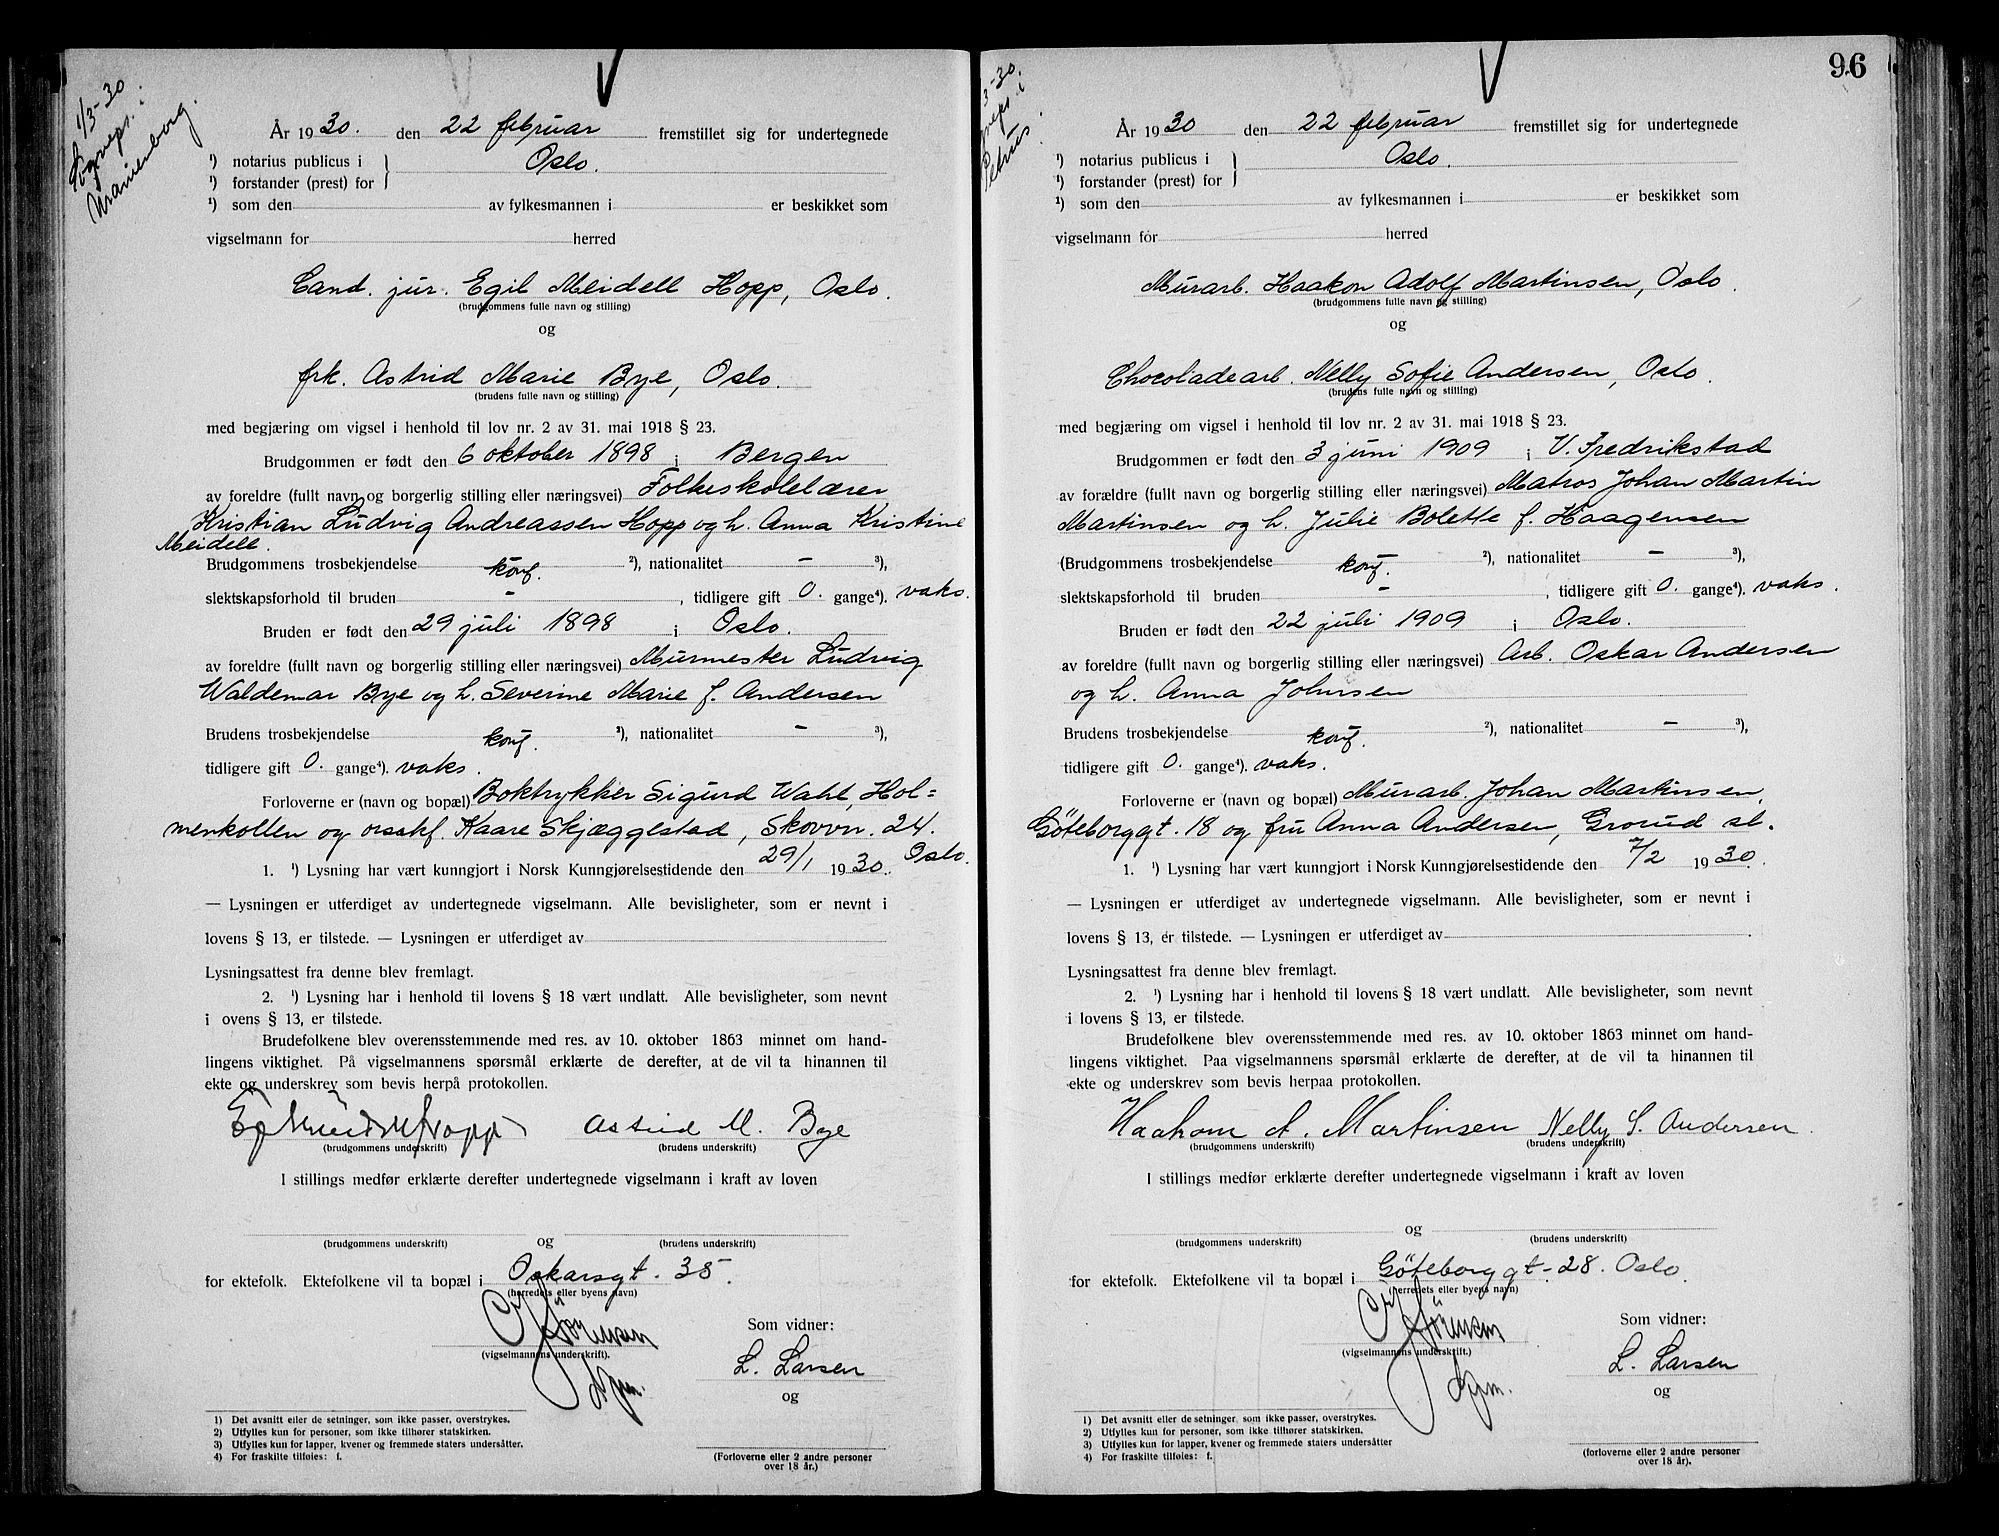 1/3-30
Sogneps. i
Uranienborg.
År 1930. den 22 februar fremstillet sig for undertegnede
¹) notarius publicus i } Oslo.
¹) forstander (prest) for
¹) som den av fylkesmannen i er beskikket som
vigselmann for herred
Cand. jur. Egil Meidell Hopp, Oslo.
(brudgommens fulle navn og stilling)
og
frk. Astrid Marie Bye, Oslo.
(brudens fulle navn og stilling)
med begjæring om vigsel i henhold til lov nr. 2 av 31. mai 1918 § 23.
Brudgommen er født den 6 oktober 1898 i Bergen
av foreldre (fullt navn og borgerlig stilling eller næringsvei) Folkeskolelærer
Kristian Ludvig Andreassen Hopp og h. Anna Kristine
Meidell.
Brudgommens trosbekjendelse konf. ²), nationalitet – ³),
slektskapsforhold til bruden - , tidligere gift 0. gange⁴). vaks.
Bruden er født den 29 juli 1898 i Oslo.
av foreldre (fullt navn og borgerlig stilling eller næringsvei) Murmester Ludvig
Waldemar Bye og h. Severine Marie f. Andersen
Brudens trosbekjendelse konf. ²), nationalitet – ³),
tidligere gift 0. gange⁴). vaks.
Forloverne er (navn og bopæl) Boktrykker Sigurd Wahl, Hol=
menkollen og orsakf. Kaare Skjæggestad, Skovvn. 24.
Oslo.
1. ¹) Lysning har vært kunngjort i Norsk Kunngjørelsestidende den 29/1 1930.
— Lysningen er utferdiget av undertegnede vigselmann. Alle bevisligheter, som er nevnt i
lovens § 13, er tilstede. — Lysningen er utferdiget av
Lysningsattest fra denne blev fremlagt.
2. ¹) Lysning har i henhold til lovens § 18 vært undlatt. Alle bevisligheter, som nevnt
i ovens § 13, er tilstede.
Brudefolkene blev overensstemmende med res. av 10. oktober 1863 minnet om hand-
lingens viktighet. På vigselmannens spørsmål erklærte de derefter, at de vil ta hinannen til
ekte og underskrev som bevis herpå protokollen.
Eg Meidell Hopp Astrid M. Bye
(brudgommens underskrift) (brudens underskrift)
I stillings medfør erklærte derefter undertegnede vigselmann i kraft av loven
og
(brudgommens underskrift) (brudens underskrift)
for ektefolk. Ektefolkene vil ta bopæl i Oskarsgt. 35.
(herredets eller byens navn)
(vigselmannens underskrift).
Som vidner:
L. Larsen
og
1) Det avsnitt eller de setninger, som ikke passer, overstrykes.
2) Utfylles kun for personer, som ikke tilhører statskirken.
3) Utfylles kun for lapper, kvener og fremmede staters undersåtter.
4) For fraskilte tilføies: f.
(Forloverne eller 2 andre personer
over 18 år.)
96
3-30.
Petrus
År 1930 den 22 februar fremstillet sig for undertegnede
¹) notarius publicus i } Oslo.
¹) forstander (prest) for
¹) som den av fylkesmannen i er beskikket som
vigselmann for herred
Murarb. Haakon Adolf Martinsen, Oslo.
(brudgommens fulle navn og stilling)
og
Chocoladearb. Nelly Sofie Andersen, Oslo.
(brudens fulle navn og stilling)
med begjæring om vigsel i henhold til lov nr. 2 av 31. mai 1918 § 23.
Brudgommen er født den 3 juni 1909 i V. Fredrikstad
av forældre (fullt navn og borgerlig stilling eller næringsvei) Matros Johan Martin
Martinsen og h. Julie Bolette f. Haagensen
(Brudgommens trosbekjendelse konf. ²), nationalitet – ³),
slektskapsforhold til bruden - , tidligere gift 0. gange⁴). vaks.
Bruden er født den 22 juli 1909 i Oslo.
av foreldre (fullt navn og borgerlig stilling eller næringsvei) Arb. Oskar Andersen
og h. Anna Johnsen
Brudens trosbekjendelse konf. ²), nationalitet – ³),
tidligere gift 0. gange⁴). vaks.
Forloverne er (navn og bopæl) Murarb. Johan Martinsen,
Göteborggt. 18 og fru Anna Andersen, Grorud st.
1. ¹) Lysning har vært kunngjort i Norsk Kunngjørelsestidende den 7/2 1930.
— Lysningen er utferdiget av undertegnede vigselmann. Alle bevisligheter, som er nevnt i
lovens § 13, er tilstede. — Lysningen er utferdiget av
Lysningsattest fra denne blev fremlagt.
2. ¹) Lysning har i henhold til lovens § 18 vært undlatt. Alle bevisligheter, som nevnt
i lovens § 13, er tilstede.
Brudefolkene blev overensstemmende med res. av 10. oktober 1863 minnet om hand-
lingens viktighet. Paa vigselmannens spørsmål erklærte de derefter, at de vil ta hinannen til
ekte og underskrev som bevis herpaa protokollen.
Haakon A. Martinsen Nelly S. Andersen.
(brudgommens underskrift) (brudens underskrift)
I stillings medfør erklærte derefter undertegnede vigselmann i kraft av loven
og
(brudgommens underskrift) (brudens underskrift)
for ektefolk. Ektefolkene vil ta bopæl i Göteborggt. 28. Oslo.
(herredets eller byens navn)
(vigselmannens underskrift.)
Som vidner:
L. Larsen
og
1) Det avsnitt eller de setninger, som ikke passer, overstrykes.
2) Utfylles kun for personer, som ikke tilhører statskirken.
3) Utfylles kun for lapper, kvener og fremmede staters undersåtter
4) For fraskilte tilføies: f.
(forloverne eller 2 andre personer
over 18 år).